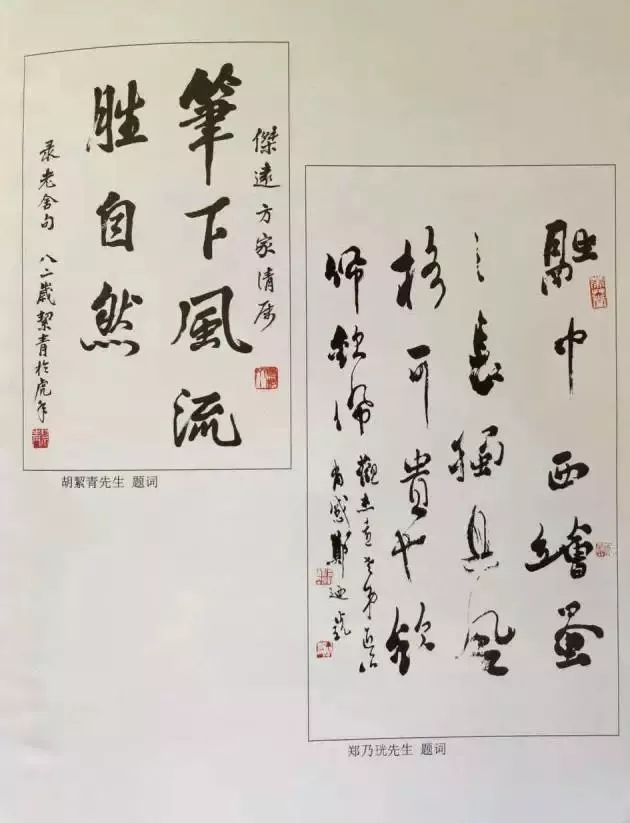 傑遠方家清属
筆下風流
胜自然
录老舍句 八二歲絜青於虎年
胡絮青先生 题词
融中西繪畫
之長獨具風
格可貴也欽
佩欽佩
觀杰遠老弟近作
有感鄭迺珖
郑乃珖先生 题词